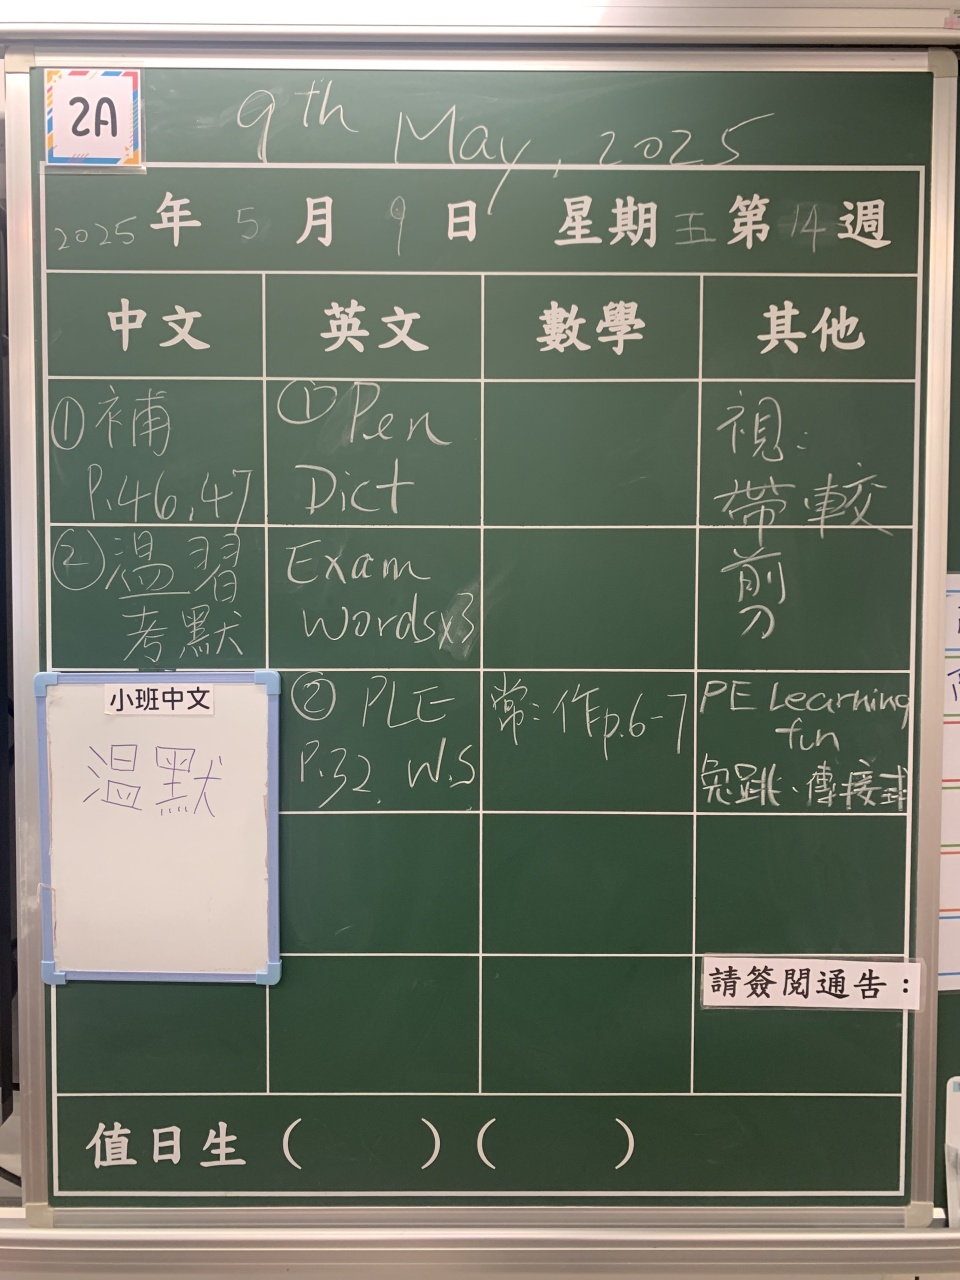 2A
9th May, 2025
2025年5月9日 星期五 第14週
中文
英文
數學
其他
①補
P.46,47
②溫習
考默
小班中文
溫默
①Pen
Dict
Exam
Words x3
② PLE
P.32, W.S
常:作p.6-7
視:
帶軟
剪刀
PE Learning
fun
兔跳、傳接球
請簽閱通告:
值日生( )( )